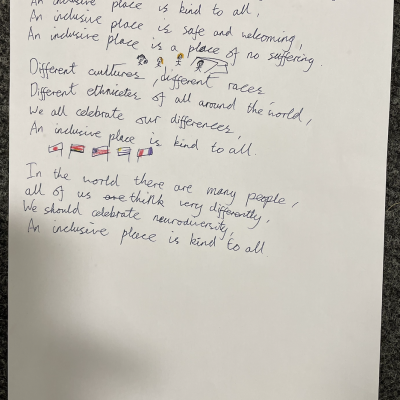 An inclusive place is kind to all,
An inclusive place is safe and welcoming,
An inclusive place is a place of no suffering.
Different cultures, different races
Different ethnicetes of all around the world,
We all celebrate our differences,
An inclusive place is kind to all.
In the world there are many people,
all of us are think very differently,
We should celebrate neurodiversity,
An inclusive place is kind to all